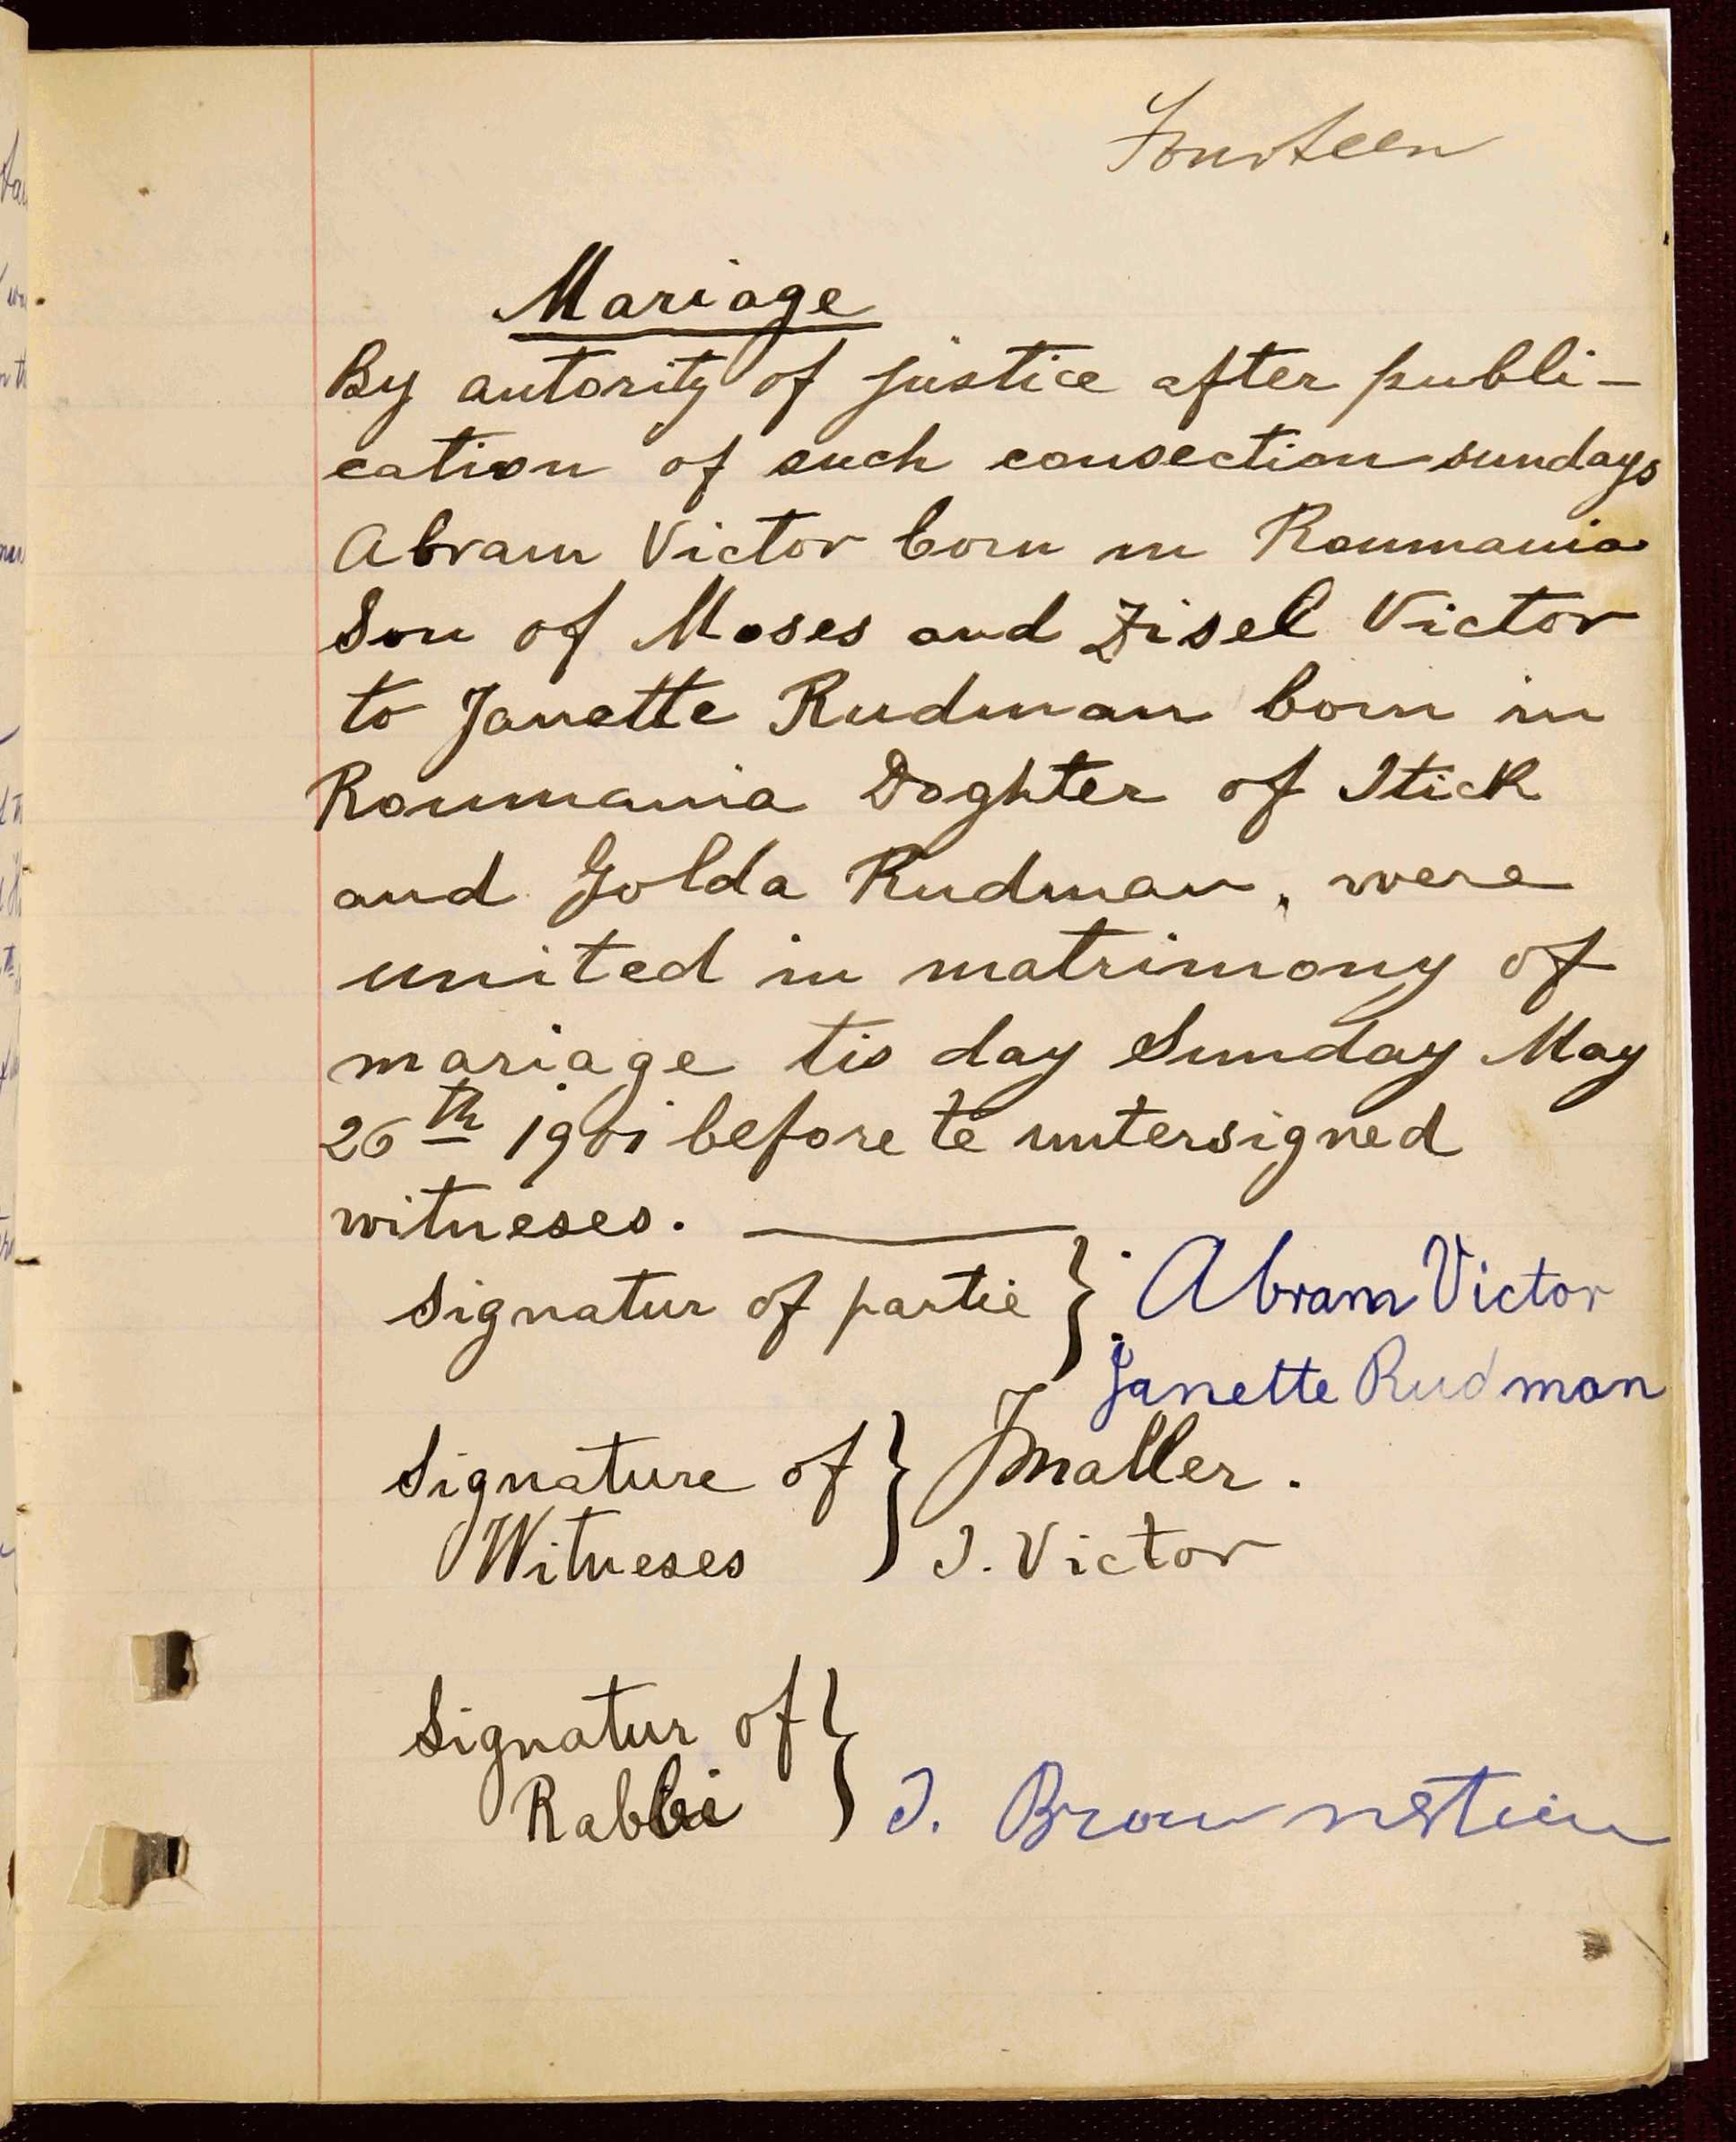 Fourteen
Mariage
By autority of justice after publi-
cation of such consection sundays
Abram Victor born in Roumania
Son of Moses and Zisel Victor
to Janette Rudman born in
Roumania Doghter of Itick
and Golda Rudman, were
united in matrimony of
mariage tis day Sunday May
26th 1901 before te untersigned
witneses.
Signatur of partie } Abram Victor
Janette Rudman
Signature of } Maller.
Witneses I. Victor
Signatur of }
Rabbi I. Brownstein